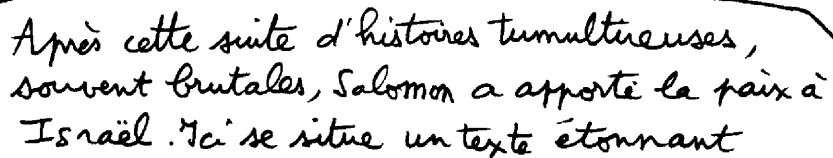 Après cette suite d'histoires tumultueuses,
souvent brutales, Salomon a apporté la paix à
Israël. Ici se situe un texte étonnant